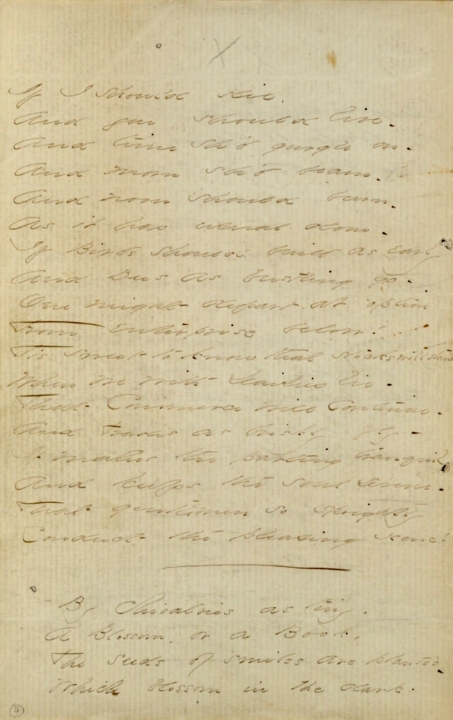 If I should die.
And you should live.
And time sh'd gurgle on.
And morn sh'd beam.
And noon should burn.
As it has usual done.
If Birds should build as early
And Bees as bustling go.
One might depart at option
From enterprise below!
'Tis sweet to know that stocks will stand
When we with Daisies lie.
That Commerce will continue.
And Trades as briskly fly.
It makes the parting tranquil
And keeps the soul serene.
That gentlemen so sprightly
Conduct the pleasing scene!
By Chivalries as tiny.
A Blossom, or a Book.
The seeds of smiles are planted.
Which blossom in the dark.
4